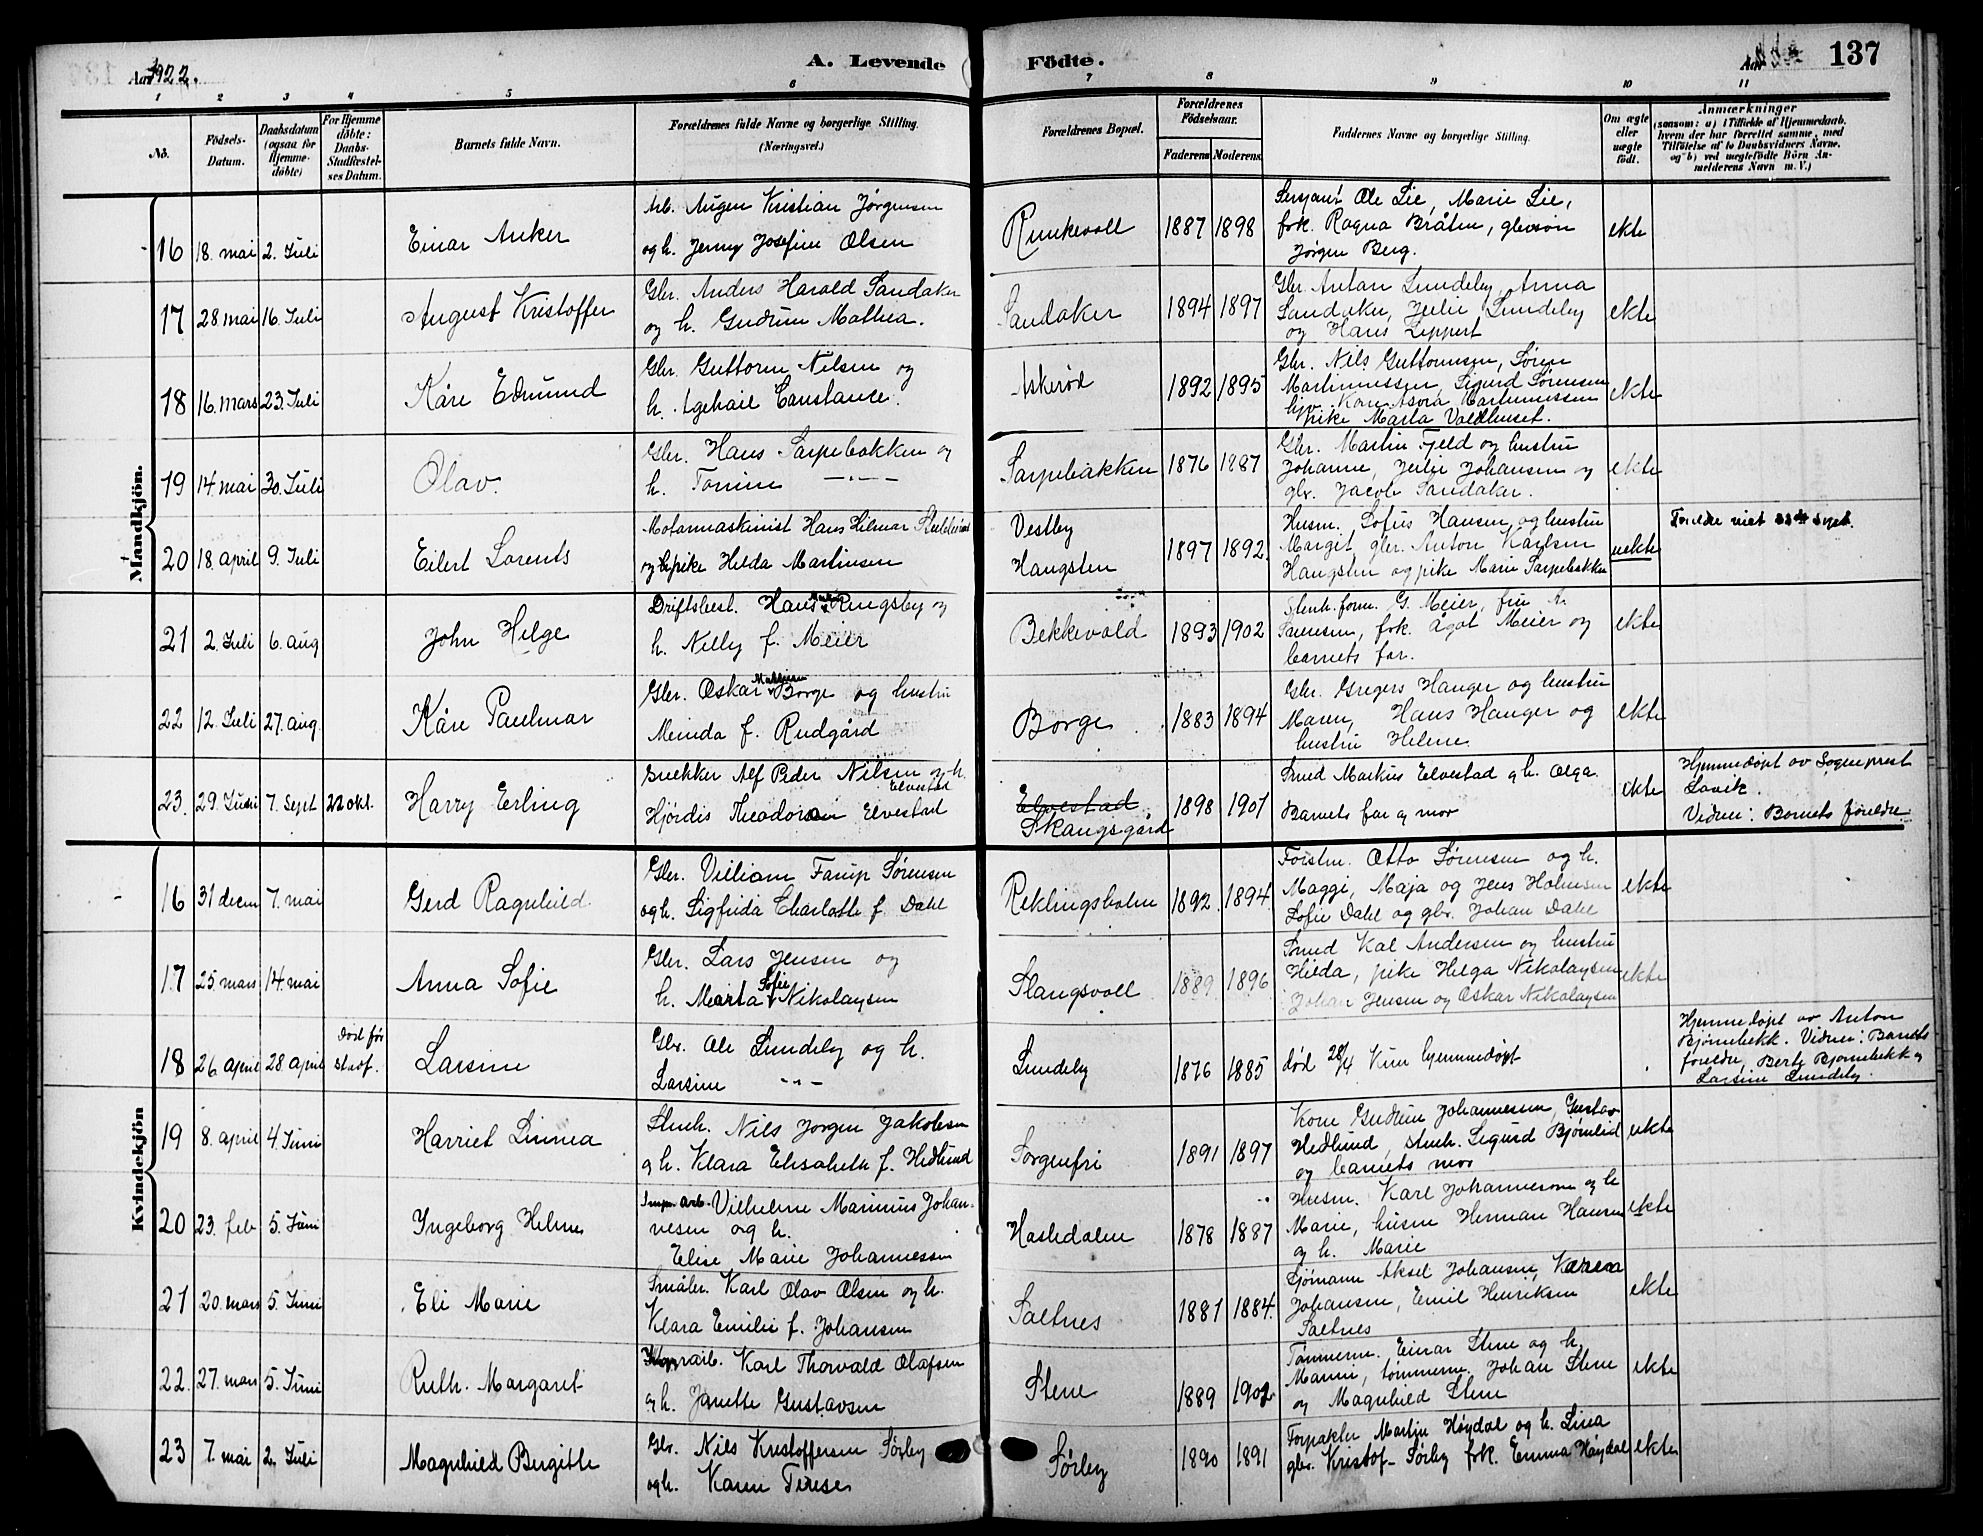 Aar 1922.
A. Levende
Födte.
Aar
137
1 2 3 4 5 6 7 8 9 10 11
No.
Födsels-
Datum.
Daabsdatum
(ogsaa for
Hjemme-
döbte)
For Hjemme
döbte:
Daabs-
Stadfæstel-
ses Datum.
Barnets fulde Navn.
Forældrenes fulde Navne og borgerlige Stilling.
(Næringsvei.)
Forældrenes Bopæl.
Forældrenes
Födselsaar.
Faderens
Moderens
Faddernes Navne og borgerlige Stilling.
Om ægte
eller
uægte
födt.
Anmærkninger
(saasom: a) i Tilfælde af Hjemmedaab.
hvem der har forrettet samme, med
Tilföielse af to Daabsvidners Navne.
og b) ved uægtefödte Börn An-
melderens Navn m. V.)
Mandkjön.
16 18. mai 2. Juli Einar Anker
Arb. Augen Kristian Jørgensen
og h. Jenny Josefine Olsen
Runkevoll 1887 1898
Sersjant Ole Lie, Marie Lie,
frk. Ragna Bråten,
Jørgen Berg.
ekte
17 28. mai 16. Juli August Kristoffer
Gbr. Anders Harald Sandaker
og h. Gudrun Mathea.
Sandaker 1894 1897
Gbr. Anton Lundeby, Anna
Sandaker, Julie Lundeby
og Hans Lippert
ekte
18 16. mars 23. Juli Kåre Edmund
Gbr. Guttorm Nilsen og
h. Constance.
Askerød 1892 1895
Gbr. Nils Guttormsen, Søren
Martinussen, Sigurd Sørensen
Kone Asora Martinussen
pike Marta Valdhuset.
ekte
19 14 mai 30. Juli Olav.
Gbr. Hans Sarpebakken og
h. Tomine —"—
Sarpebakken 1876 1887
Gbr. Martin Fjeld og hustru
Johanne, Julie Johansen og
gbr. Jacob Sandaker.
ekte
20 18. april 9. Juli Eilert Lorents
Motormaskinist Hans Hilmar
og pike Hilda Martinsen
Vestby
Haugsten
1897 1892.
Husm. Lofus Hansen og hustru
Margit, gbr. Anton Karlsen
Haugsten og pike Marie Sarpebakken
uekte
21 2. Juli 6. aug John Helge
Driftsbest. Hans Ringsby og
h. Nelly f. Meier
Bekkevold 1893 1902
G. Meier, fru A.
Sørensen, frk. Ågot Meier og
barnets far.
ekte
22 12. Juli 27. aug. Kåre Paulmar
Gbr. Oskar Borge og hustru
Meinda f. Rudgård
Borge 1883 1894
Gbr. Gregers Hauger og hustru
Maren, Hans Hauger og
hustru Helene
ekte
23. 29. Juni 7. Sept 22 okt. Harry Erling
Snekker Alf Peder Nilsen og h.
Elvestad
Hjørdis Theodora Elvestad
Elvestad
Skangsgård
1898 1901
Smed Markus Elvestad og h. Olga.
Barnets far og mor
ekte
Hjemmedøpt av Sogneprest
Lavik.
Vidner: Barnets foreldre
Kvindekjön
16 31 decem 7. mai Gerd Ragnhild
Gbr. Villiam Farup Sørensen
og h. Sigfrida Charlotte f. Dahl
Reklingsholm 1892. 1894
Forstm. Otto Sørensen og h.
Maggi, Maja og Jens Holmsen
Sofie Dahl og gbr. Johan Dahl
ekte
17 25. mars 14. mai Anna Sofie
Gbr. Lars Jensen og
h. Marta Sofie Nikolaysen
Slangsvoll 1889 1896
Smed Kal Andersen og hustru
Hilda, pike Helga Nikolaysen
Johan Jensen og Oskar Nikolaysen
ekte
18 26 april 28. april
død før
stadf.
Larsine
Gbr. Ole Lundeby og h.
Larsine -"-
Lundeby 1876 1885
død 28/4 Kun hjemmedøpt
Hjemmedøpt av Anton
Bjørnebekk. Vidner: Barnets
foreldre, Berte Bjørnebekk og
Larsine Lundeby.
19 8. april 4. Juni Harriet Linnea
Stenh. Nils Jørgen Jakobsen
og h. Klara Elisabeth f. Hedlund
Sorgenfri 1891 1897
Kone Gudrun Johannessen, Gustav
Hedlund, stenh. Sigurd Bjørnlid
og barnets mor
ekte
20 23. feb 5. Juni Ingeborg Helene
Vilhelm Marinius Johan-
nesen og h.
Elise Marie Johannessen
Hasledalen 1878 1887
Husm. Karl Johannesson og h
Marie, husm Herman Hansen
og h. Marie
ekte
21 20. mars 5. Juni Eli Marie
Småbr. Karl Olav Olsen og h.
Klara Emilie f. Johansen
Saltnes 1881 1884.
Sjømann Aksel Johansen, Karen
Johansen, Emil Henriksen
Saltnes
ekte
22. 27. mars 5. Juni Ruth. Margaret
Karl Thorvald Olafsen
og h. Janette Gustavsen
Stene 1889 1902
Tømmerm. Einar Stene og h.
Marni, tømmerm. Johan Stene
og Magnhild Stene
ekte
23 7. mai 2. Juli Magnhild Bergitte
Gbr. Nils Kristoffersen Sørby
og h. Karen Terese
Sørby 1890 1891
Forpakter Martin Høydal og h. Lina
gbr. Kristof- Sørby frk. Emma Høydal
ekte